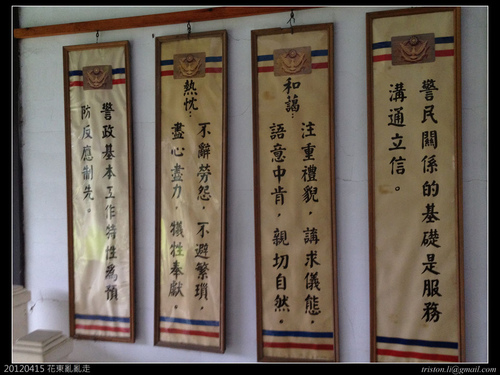 警民關係的基礎是服務
溝通立信。
和藹：
注重禮貌，講求儀態，
語意中肯，親切自然。
熱忱：
不辭勞怨，不避繁瑣，
盡心盡力，犧牲奉獻。
警政基本工作特性為預
防反應制先。
20120415 花東亂亂走
triston.li@gmail.com